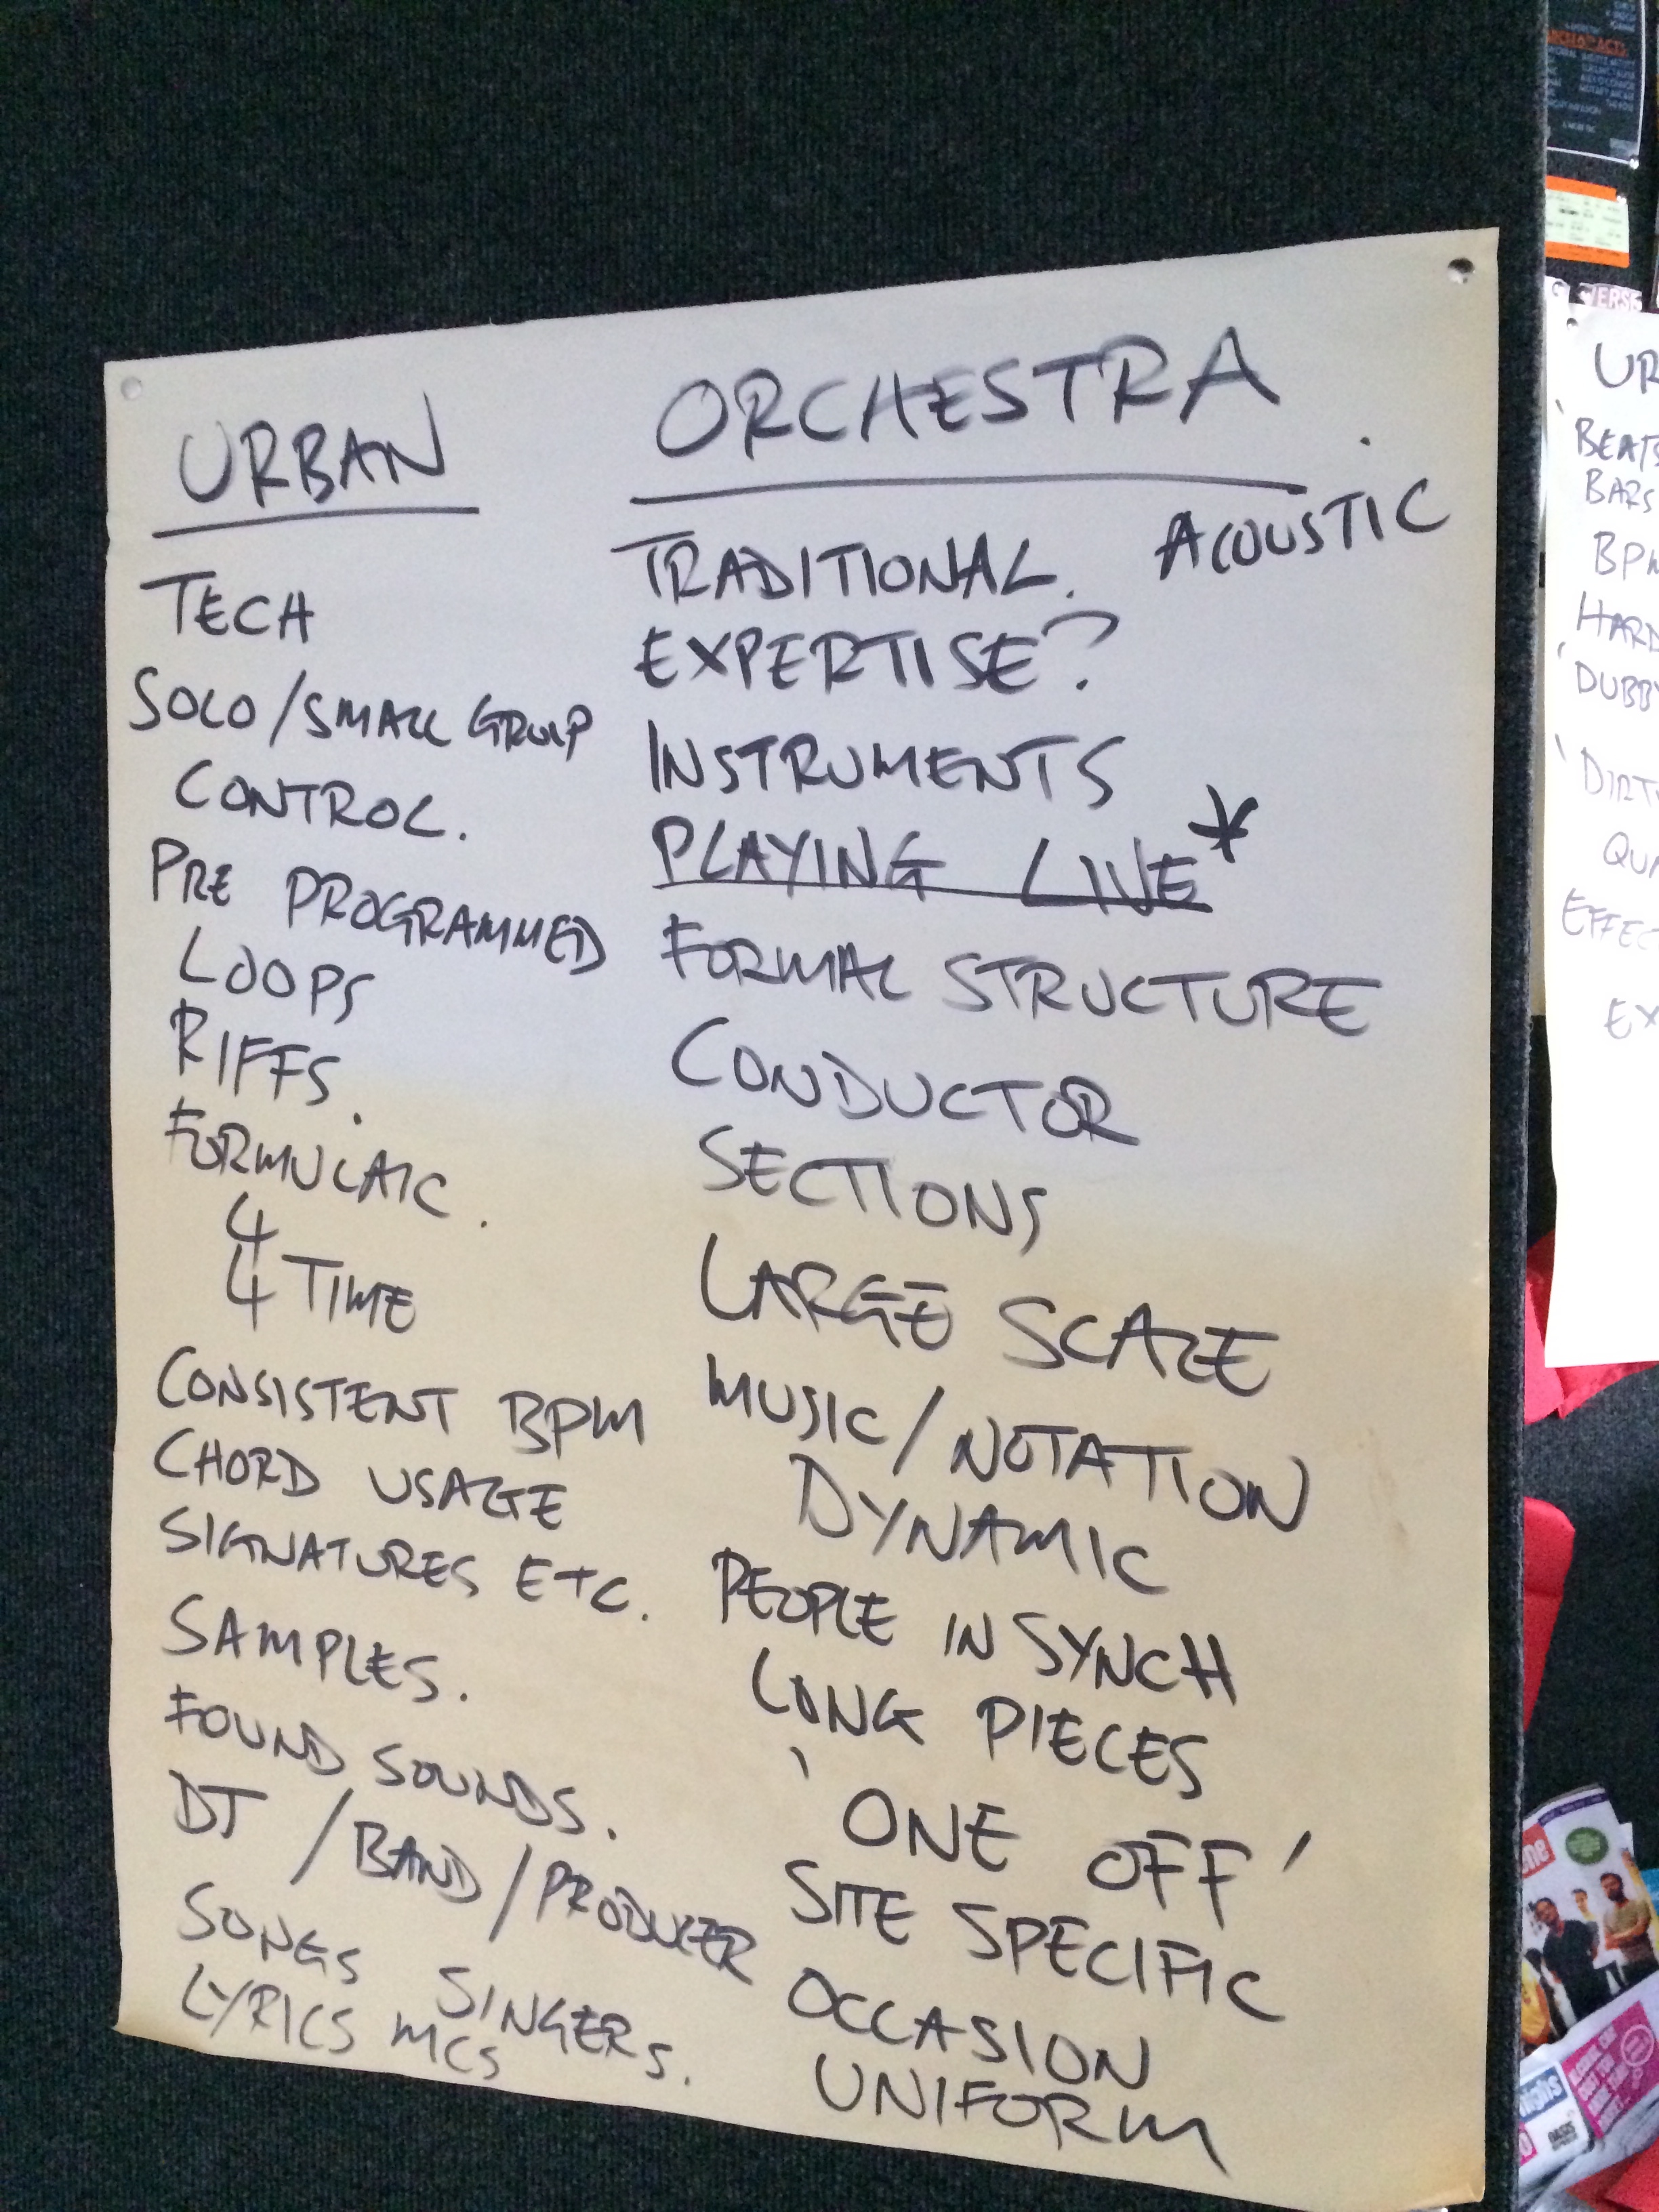 URBAN
TECH
SOLO/SMALL GROUP
CONTROL.
PRE PROGRAMMED
LOOPS
RIFFS.
FORMULAIC.
4
4 TIME
CONSISTENT BPM
CHORD USAGE
SIGNATURES ETC.
SAMPLES.
FOUND SOUNDS.
DJ / BAND / PRODUCER
SONGS SINGERS.
LYRICS MCS
ORCHESTRA
TRADITIONAL. ACOUSTIC
EXPERTISE?
INSTRUMENTS
PLAYING LIVE*
FORMAL STRUCTURE
CONDUCTOR
SECTIONS
LARGE SCALE
MUSIC/NOTATION
DYNAMIC
PEOPLE IN SYNCH
LONG PIECES
'ONE OFF'
SITE SPECIFIC
OCCASION
UNIFORM
UR
BEATS
BARS
BPM
HARD
DUBBY
DIRT
QU
EFFEC
EX
ACTS